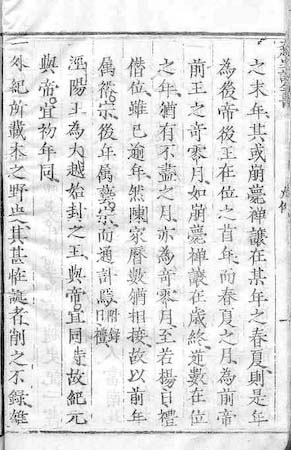 之末年其或崩薨禪讓在某年之春夏則是年
為後帝後王在位之首年而春夏之月為前帝
前王之竒零月如崩薨禪讓在歲終並數在位
之年猶有不盡之月亦為竒零月至若楊日禮
僭位雖已逾年然陳家曆數猶相接故以前年
属裕宗後年属藝宗而通計焉附錄日禮
涇陽王為大越始封之王與帝宜同時故紀元
與帝宜初年同
一外紀所載本之野史其甚恠誕者削之不錄雄